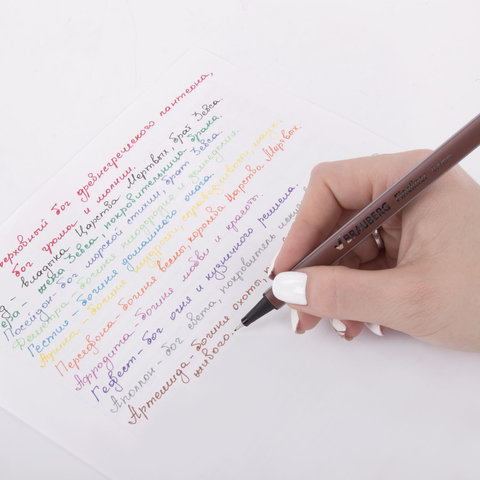 Верховный бог древнегреческого пантеона,
бог грома и молнии.
владыка Царства Мёртвых, брат Зевса
жена Зевса, покровительница брака.
Посейдон - бог морской стихии, брат Зевса.
Деметра - богиня плодородия и земледелия.
Гестия - богиня домашнего очага.
Афина - богиня мудрости, справедливости, наук,
Персефона - богиня весны, королева Царства Мёртвых.
Афродита - богиня любви и красоты.
Гефест - бог огня и кузнечного ремесла.
Аполлон - бог света, покровитель искусств
Артемида - богиня охоты,
живого.
BRAUBERG